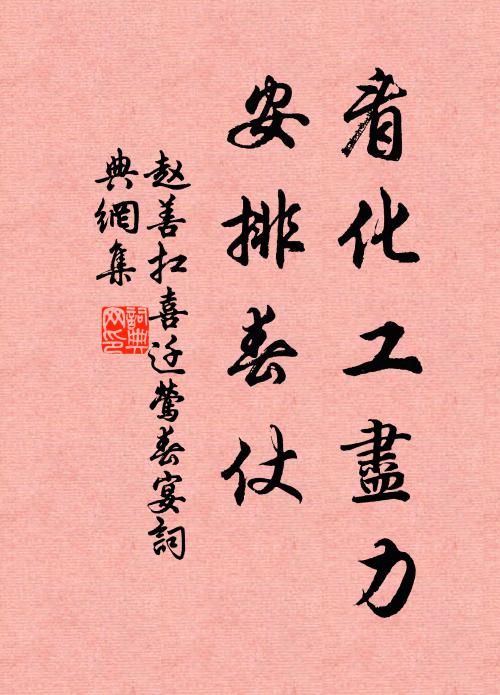 看化工盡力
安排春仗
赵善扛喜迁莺春宴詞
典網集
詞典
网印